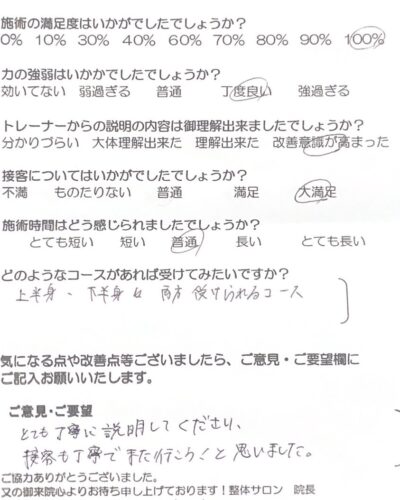 施術の満足度はいかがでしたでしょうか？
0% 10% 30% 40% 60% 70% 80% 90% 100%
力の強弱はいかがでしたでしょうか？
効いてない 弱過ぎる 普通 丁度良い 強過ぎる
トレーナーからの説明の内容は御理解出来ましたでしょうか？
分かりづらい 大体理解出来た 理解出来た 改善意識が高まった
接客についてはいかがでしたでしょうか？
不満 ものたりない 普通 満足 大満足
施術時間はどう感じられましたでしょうか？
とても短い 短い 普通 長い とても長い
どのようなコースがあれば受けてみたいですか？
上半身、下半身と両方受けられるコース
気になる点や改善点等ございましたら、ご意見・ご要望欄に
ご記入お願いいたします。
ご意見・ご要望
とても丁寧に説明してくださり、
接客も丁寧でまた行こうと思いました。
ご協力ありがとうございました。
又の御来院心よりお待ち申し上げております！整体サロン 院長